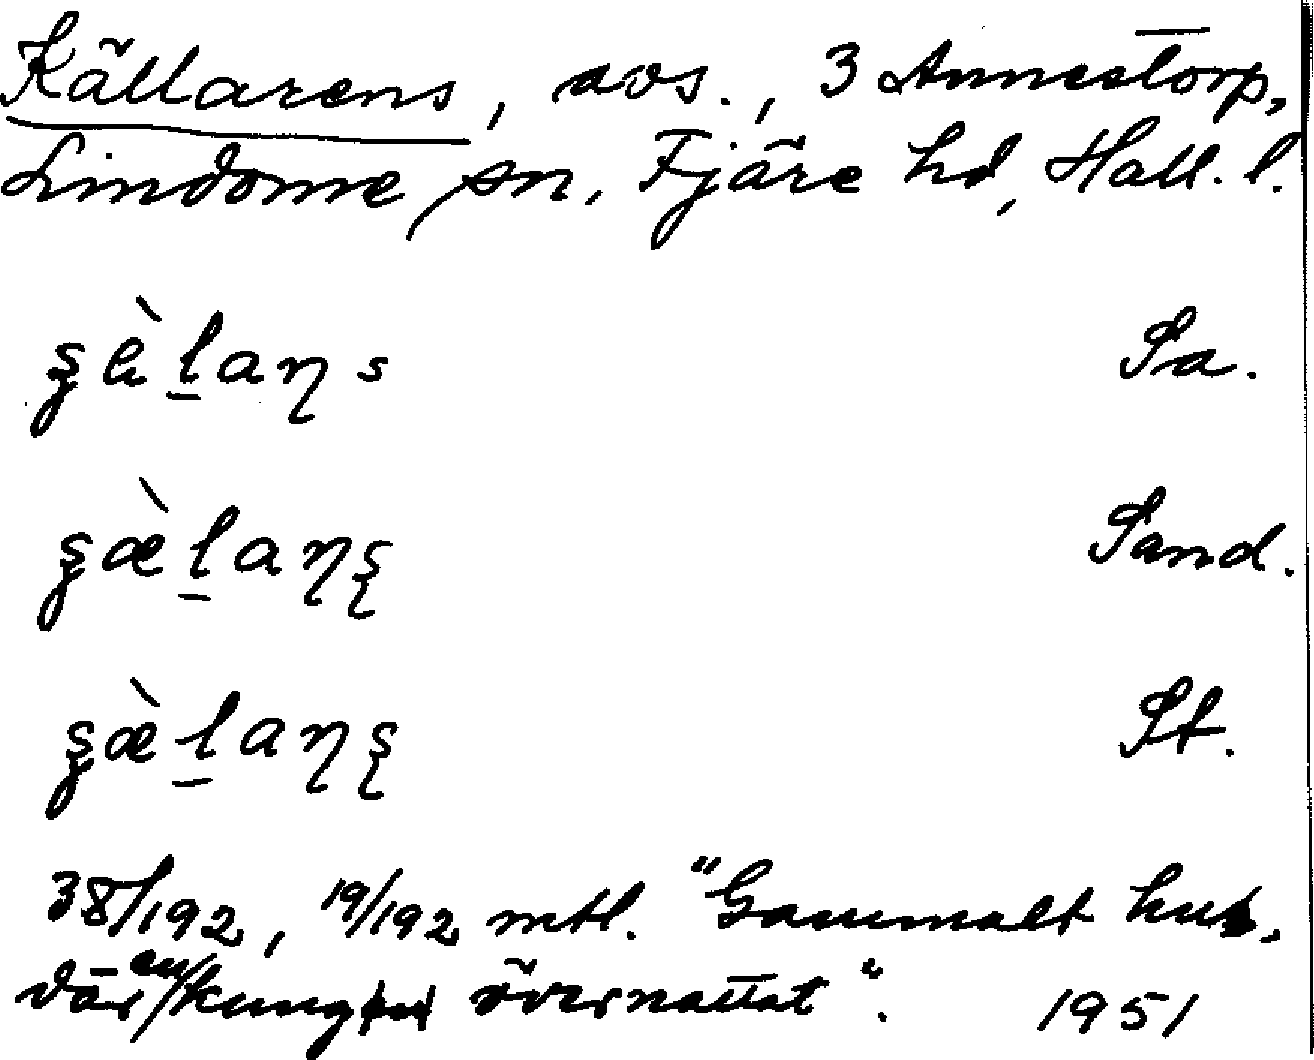 Källarens, avs., 3 Annestorp,
Lindome sn, Fjäre hd, Hall. l.
Sa.
Sand.
St.
38/192, 19/192 mtl. "Gammalt hus,
där en kung övernattat".
1951